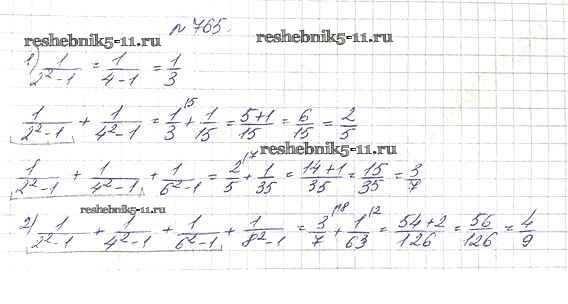 № 765.
reshebnik5-11.ru reshebnik5-11.ru
1) 1/(2²-1) = 1/(4-1) = 1/3
1/(2²-1) + 1/(4²-1) = 1/3 ⁽⁵ + 1/15 = (5+1)/15 = 6/15 = 2/5
reshebnik5-11.ru
1/(2²-1) + 1/(4²-1) + 1/(6²-1) = 2/5 ⁽⁷ + 1/35 = (14+1)/35 = 15/35 = 3/7
reshebnik5-11.ru
2) 1/(2²-1) + 1/(4²-1) + 1/(6²-1) + 1/(8²-1) = 3/7 ⁽¹⁸ + 1/63 ⁽² = (54+2)/126 = 56/126 = 4/9